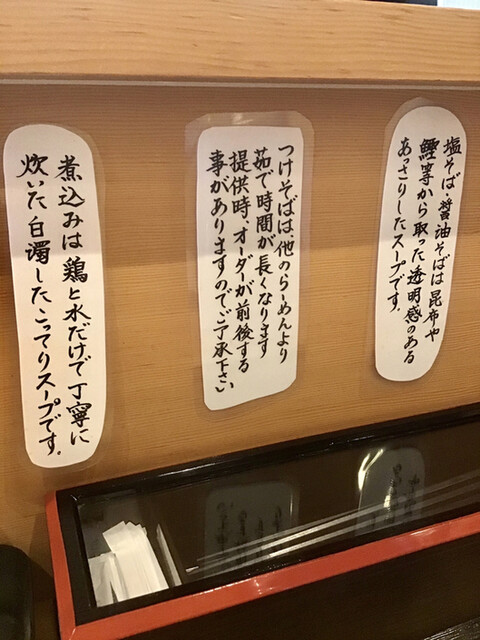 塩そば・醤油そばは昆布や
鰹等から取った透明感のある
あっさりしたスープです。
つけそばは、他のらーめんより
茹で時間が長くなります
提供時、オーダーが前後する
事がありますのでご了承下さい
煮込みは鶏と水だけで丁寧に
炊いた白濁したこってりスープです。